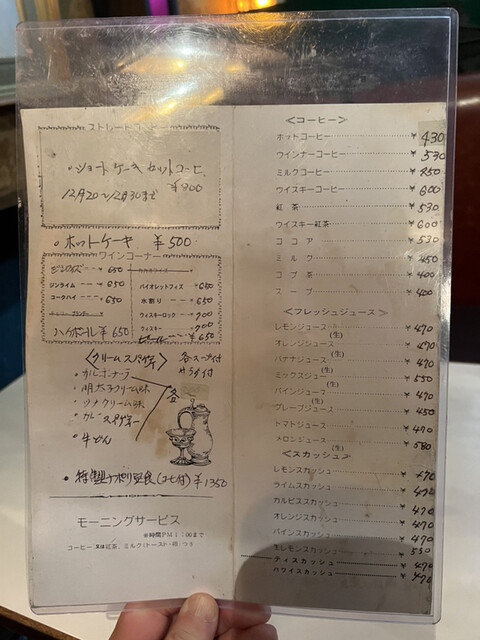 ・ショートケーキセットコーヒ
¥800
12月20〜12月30まで
・ホットケーキ ¥500
ワインコーナー
ジンライム 650
コークハイ 650
ハイボール ¥650
バイオレットフィズ 650
水割り 650
ウイスキーロック 900
ウィスキー 900
ビール ¥650
〈クリームスパゲティ〉
各スープ付
サラダ付
・カルボナーラ
・明太子クリーム味
・ツナクリーム味
・カレースパゲティー
・牛どん
各
モーニングサービス
※時間PM1:00まで
コーヒー又は紅茶、ミルク(トースト・卵)つき
<コーヒー>
ホットコーヒー ¥430
ウインナーコーヒー ¥530
ミルクコーヒー ¥850
ウイスキーコーヒー ¥600
紅茶 ¥530
ウイスキー紅茶 ¥600
ココア ¥530
ミルク ¥450
コブ茶 ¥400
スープ ¥400
<フレッシュジュース>
レモンジュース(生) ¥470
オレンジジュース(生) ¥490
バナナジュース(生) ¥490
ミックスジュー(生) ¥550
パインジュース(生) ¥470
グレープジュース ¥450
トマトジュース ¥470
メロンジュース(生) ¥580
<スカッシュ>
レモンスカッシュ ¥470
ライムスカッシュ ¥470
カルピススカッシュ ¥470
オレンジスカッシュ ¥470
パインスカッシュ ¥470
生レモンスカッシュ ¥550
ティスカッシュ ¥470
ハワイスカッシュ ¥470